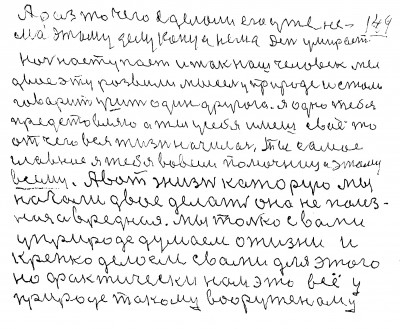 А раз то чего сделали его уже не- 149
ма этому делу конца нема Дет умирает.
Ноч наступает и так наш человек мы
двое эту розвили мысел у природе и стали
говарит учит один другога. я одно тебя
предстовляю а ты у себя имеш своё то
от чего вся жизн началас. Ты самое
главние я тебя вовсем помочниц а этаму
всему. А вот жизн каторую мы
начали двое делат она не полз-
ная а вредная. Мы толко с вами
у природе думаем о жизни и
крепко делоем с вами для этого
но фактически нам это всё у
природе такому вооруженаму